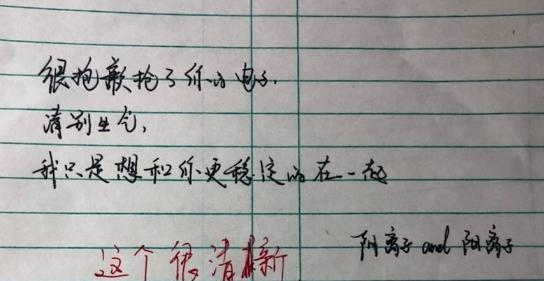 很抱歉抢了你的电子.
请别生气,
我只是想和你更稳定的在一起
阴离子 and 阳离子
这个很清新